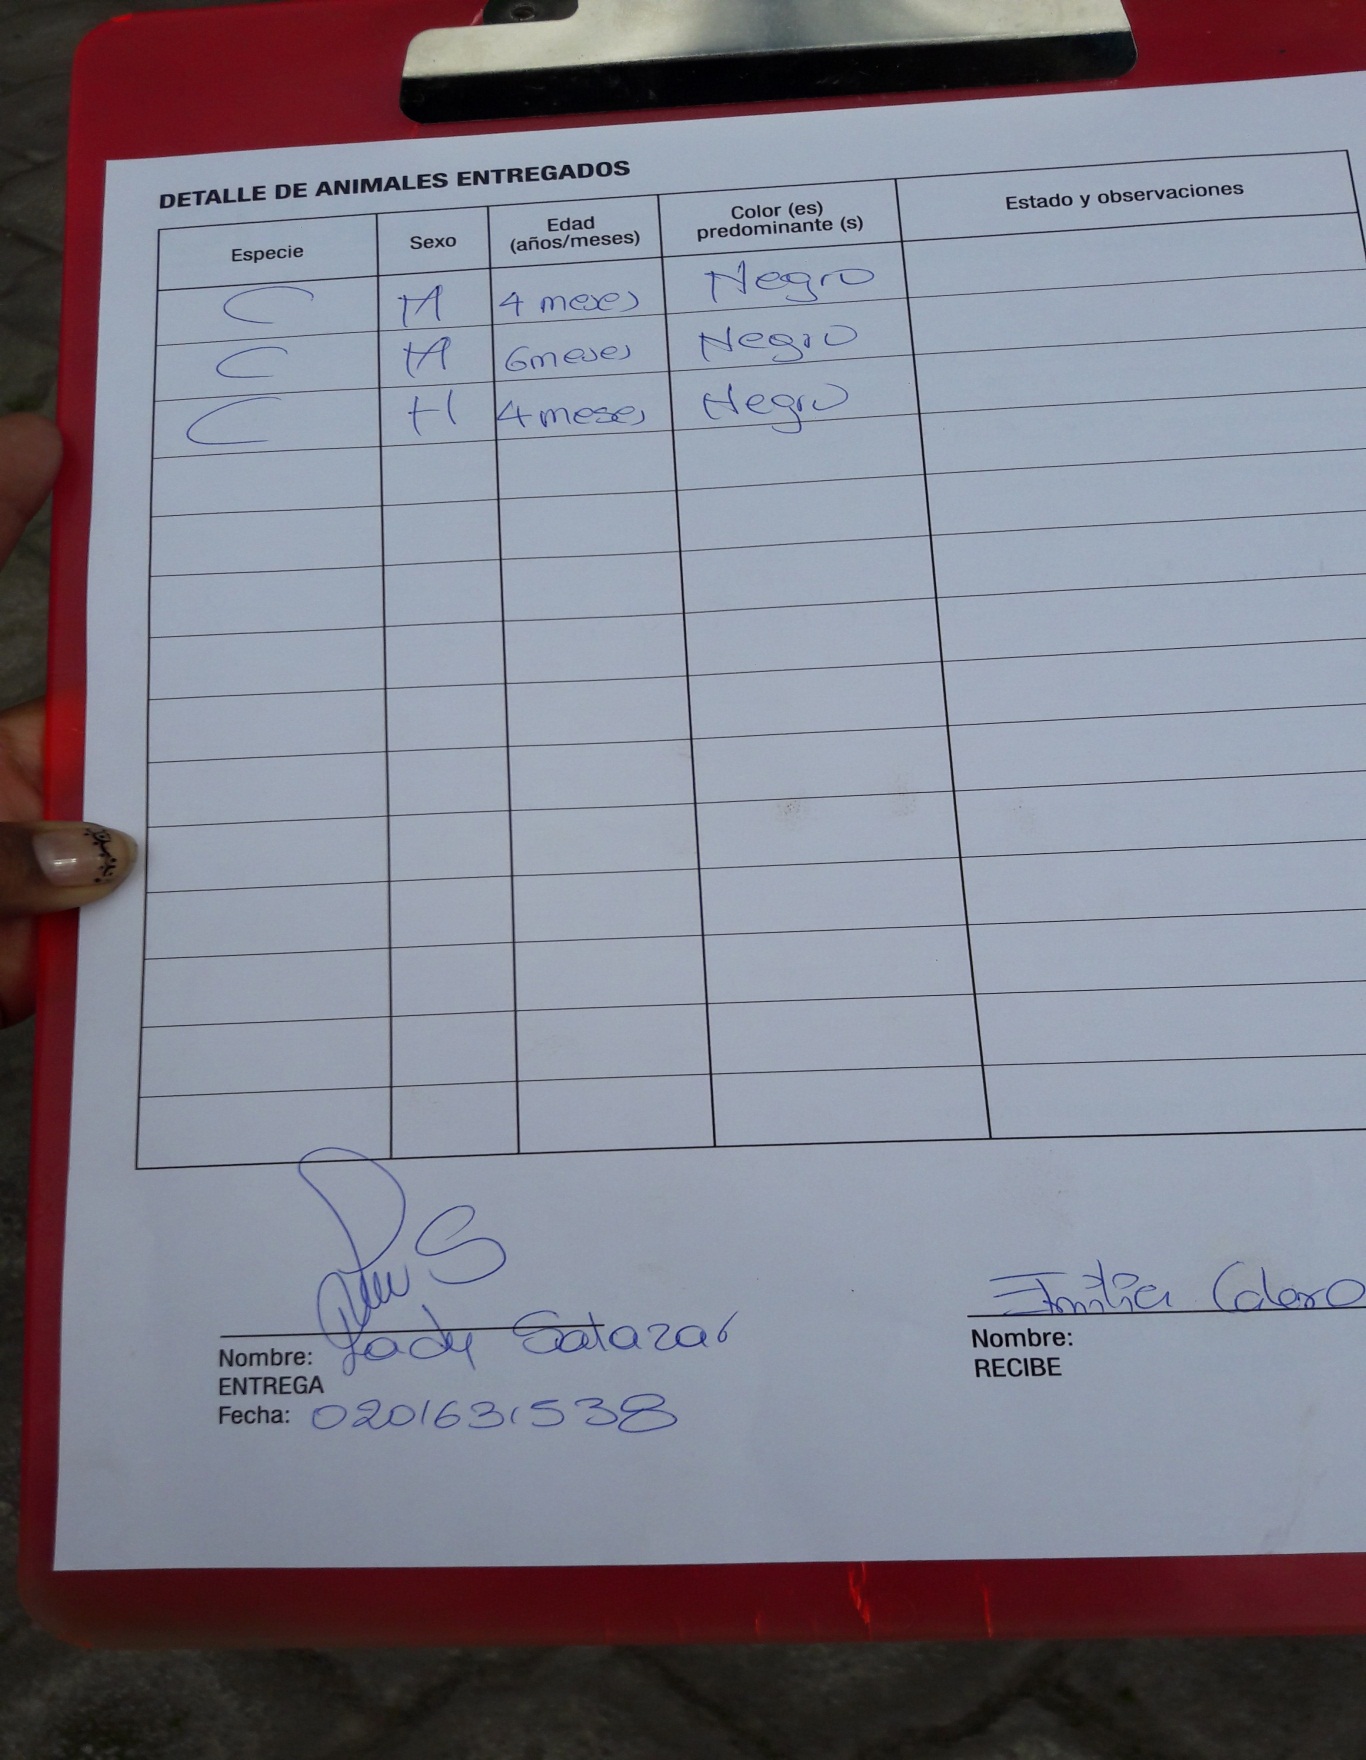 DETALLE DE ANIMALES ENTREGADOS
Especie Sexo Edad (años/meses) Color (es) predominante (s) Estado y observaciones
C M 4 meses Negro
C M 6 meses Negro
C H 4 meses Negro
Emilia Calero
Nombre: Lady Salazar
ENTREGA
Fecha: 0201631538
Nombre:
RECIBE